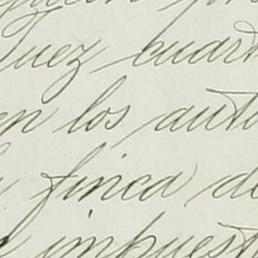 Juez cuart
en los auto
finca de
impuest